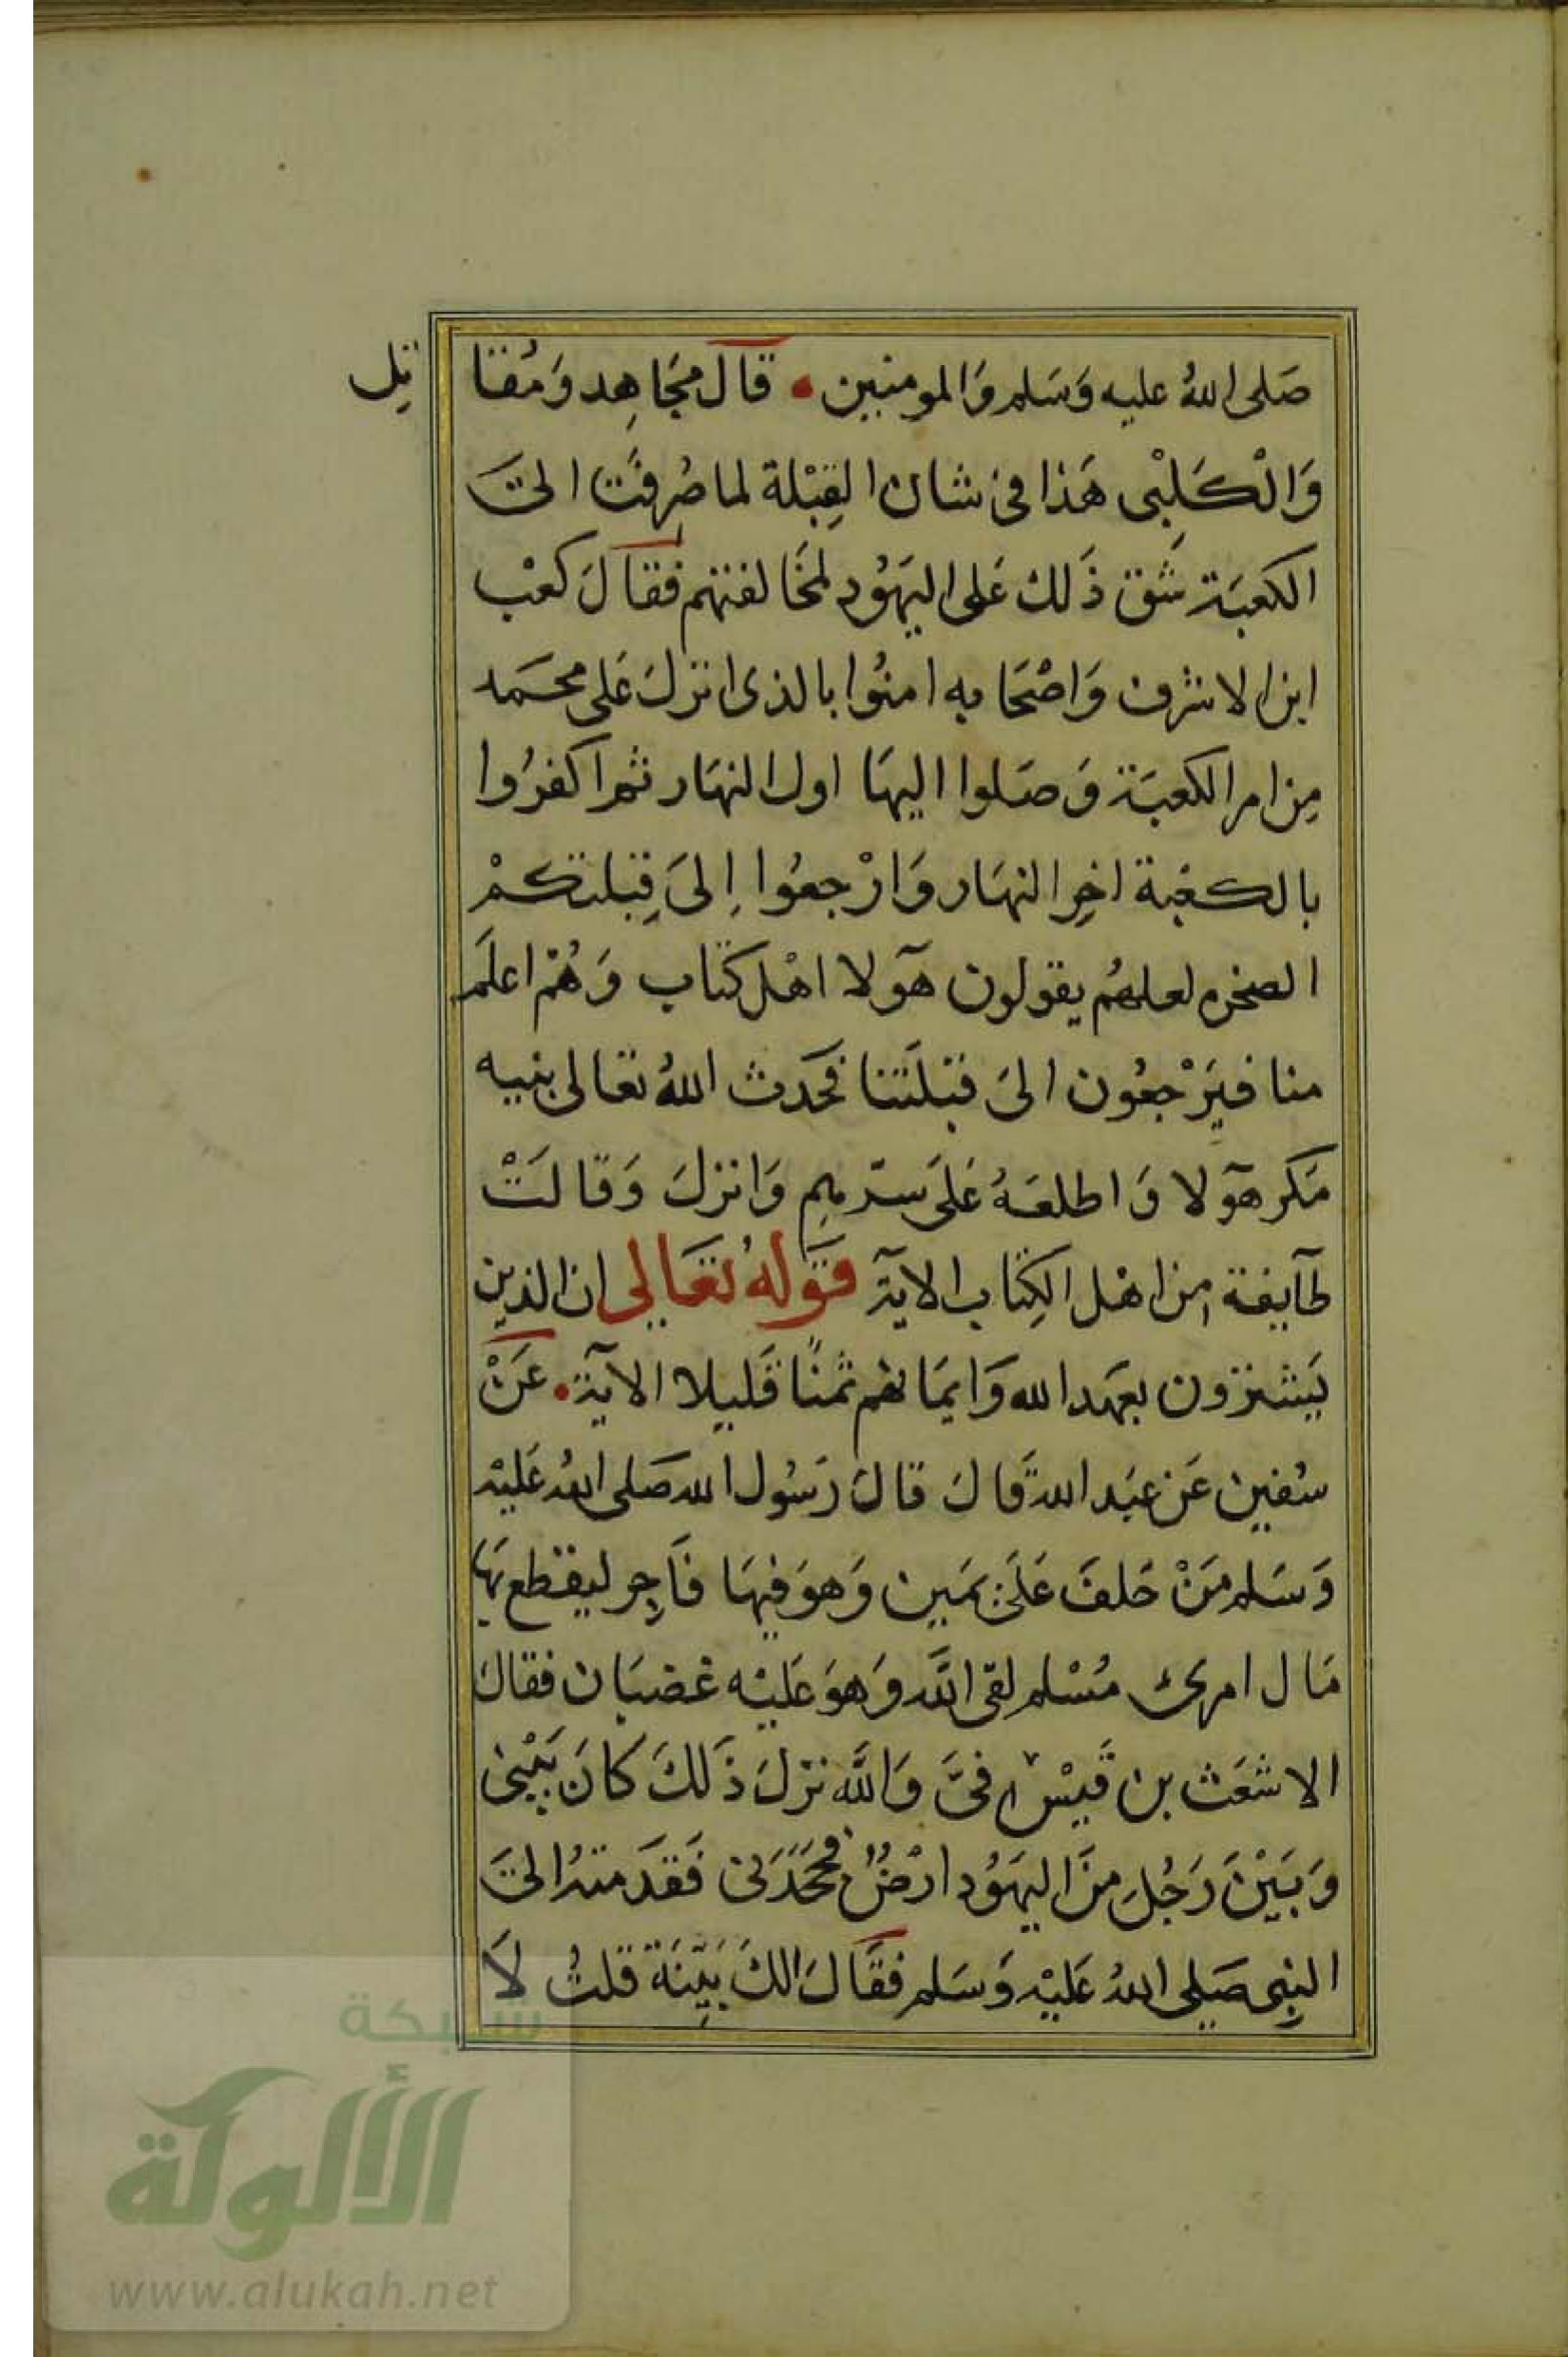 صَلى اللهُ عليه وَسَلم وَالمومنين • قالَ مجَاهِد وَمُقا تِل
وَالْكَلبْى هَذا فى شان القِبْلة لما صُرِفَت الىَ
الكعبَة شَق ذَلك عَلى اليَهوُد لمخَالفتهم فقالَ كعْب
ابن الاشرف وَاصْحَابه امنوُا بالذى انزلَ عَلى محَمد
مِن امر الكعبَة وَصَلوا اليهَا اول النهَار ثم اكفرُوا
بالكعْبة اخِر النهَار وَارْجعوُا اِلىَ قِبلتكمْ
الصخره لعلهُم يقولون هآولا اهْل كتاب وَهُم اعلَم
منا فيَرْجعوُن الىَ قبلَتنا فحَدث اللهُ تعَالى بنبيه
مَكر هآولا وَاطلعَهُ عَلَى سرّهِم وَانزلَ وَقالَتْ
طآيفة مِن اهْل الكِتاب الاية قَولهُ تعَالي ان الذين
يَشترَون بعهَد الله وَايمَانهم ثمَنًا قَليلا الآية • عَنْ
سُفين عَن عَبد الله قَالَ قالَ رَسُول الله صَلى اللهُ عَليْه
وَسَلم مَنْ حَلفَ عَلَى يمَين وَهوَ فيهَا فَاجِر ليقتطع بهَا
مَال امرئ مُسْلم لقى اللَّه وَهوَ عَليْه غضبَان فقالَ
الاشعَث بن قَيْس فىَّ وَاللَّه نزلَ ذَلكَ كانَ بَيْنى
وَبَيْنَ رَجُلٍ منَ اليَهُود ارْضٌ فجَحَدَنى فَقدَمتهُ الىَ
النِبى صَلى اللهُ عَليْه وَسَلم فقَالَ الكَ بَيِّنَة قلتُ لاَ
شبكة
الألوكة
www.alukah.net